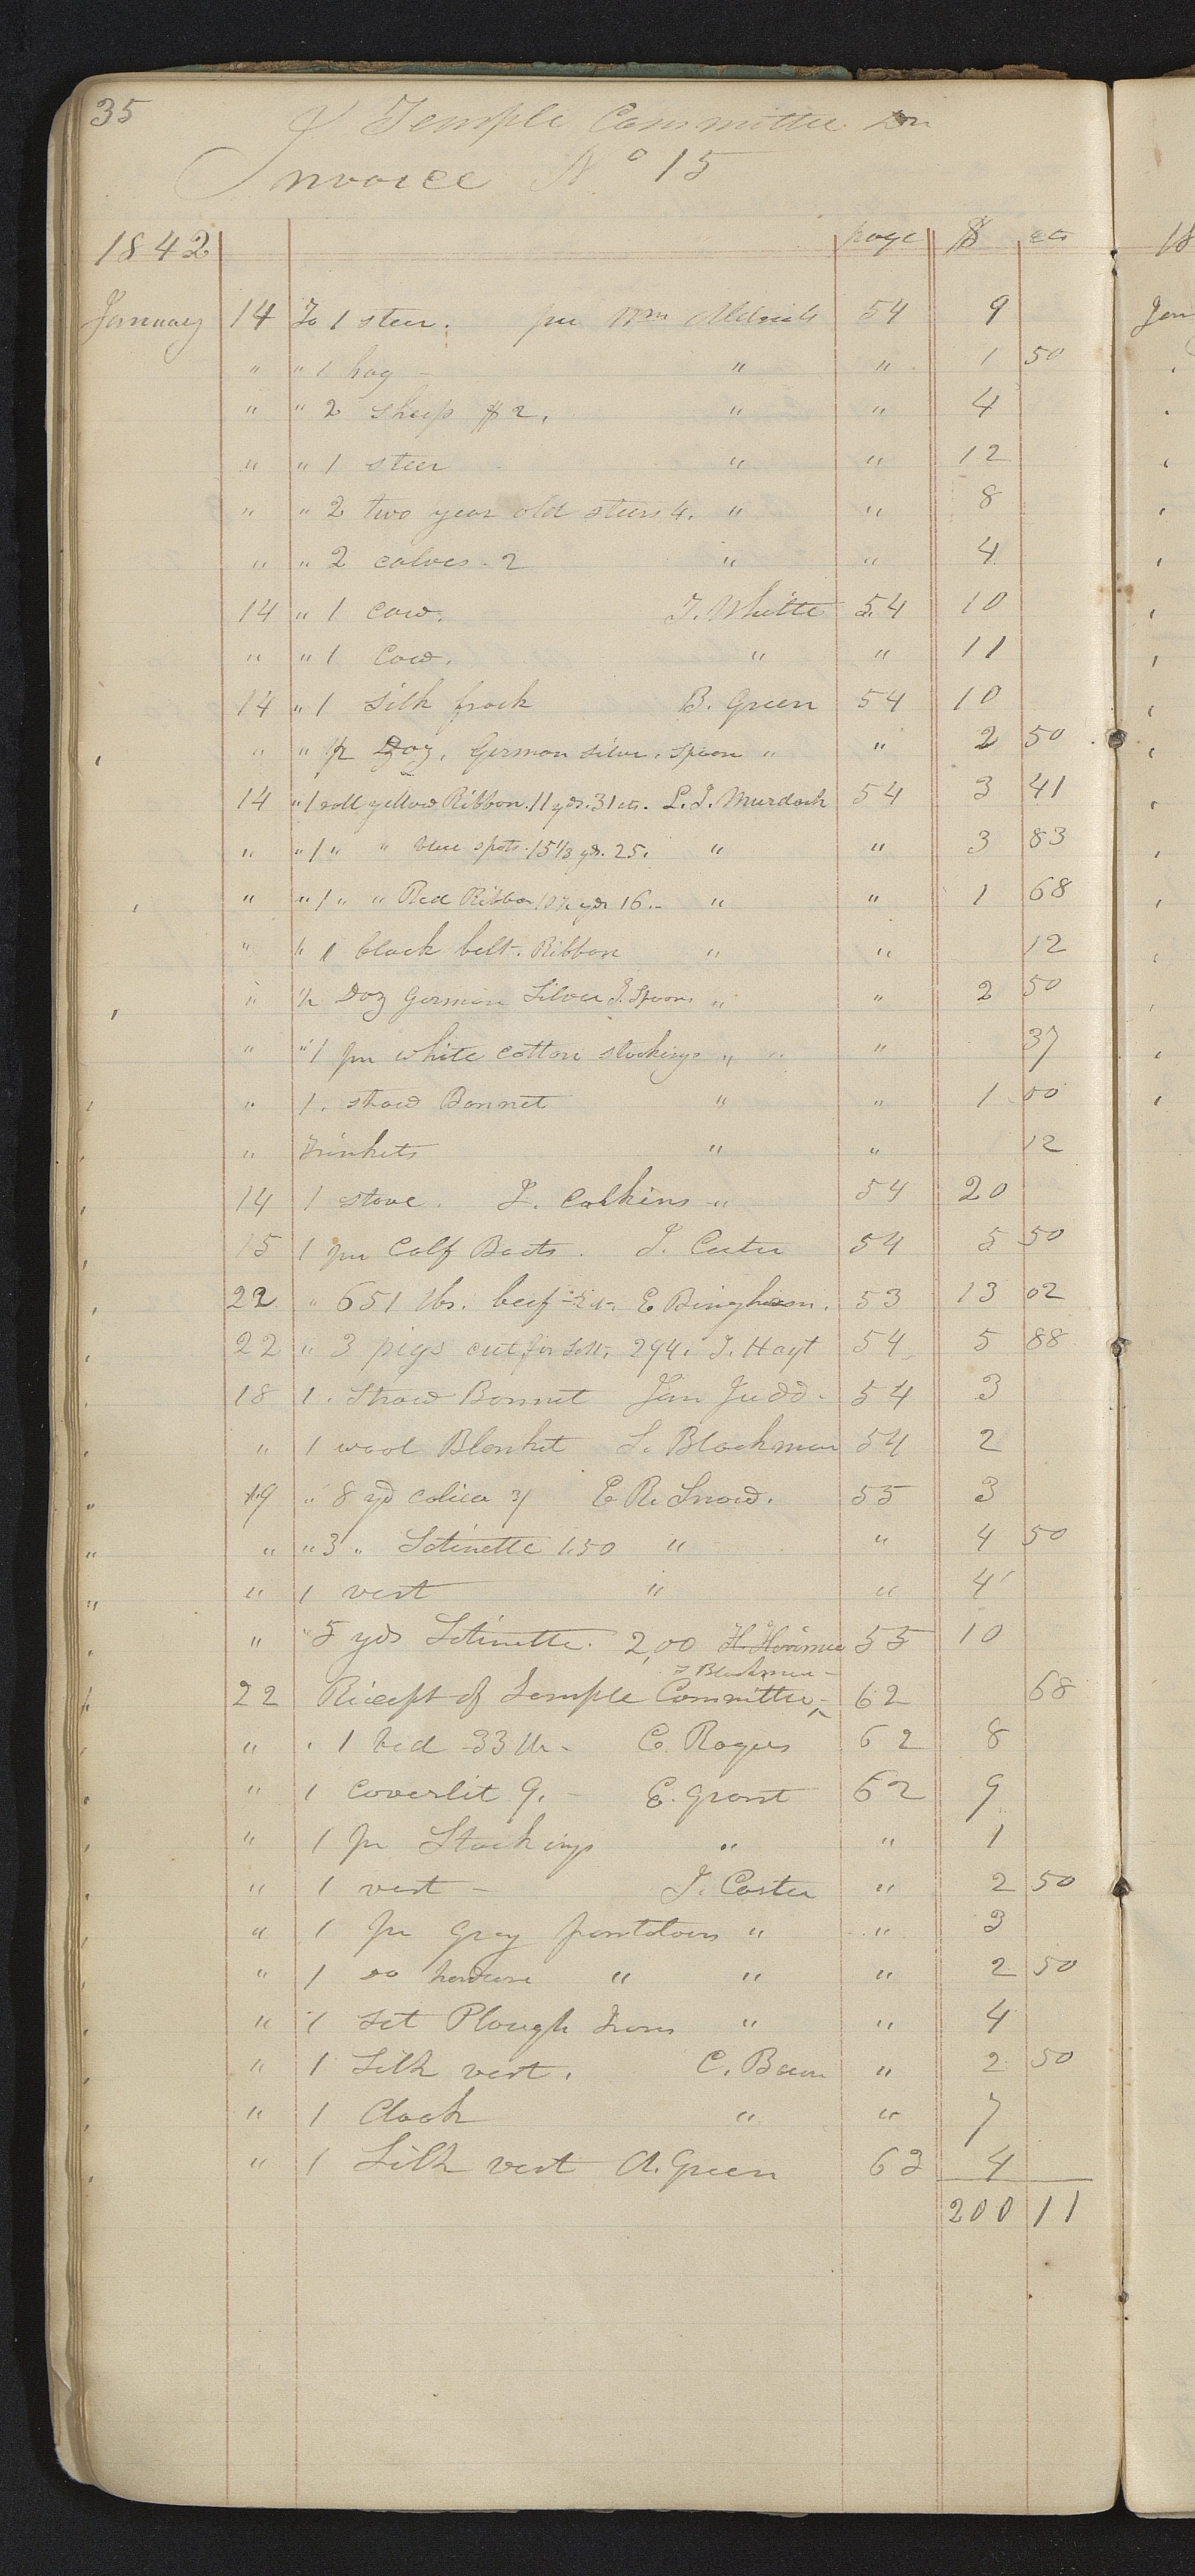 35
Temple Committee Dr
Invoice No 15
1842 page $ cts
January 14 To 1 steer. per Wm Aldrich 54 9
" " 1 hog - " " 1 50
" " 2 sheep $2. " " 4
" " 1 steer " " 12
" " 2 two year old steers 4. " " 8
" " 2 calves. 2 " " 4
14 " 1 cow. J. White 54 10
" " 1 Cow. " " 11
14 " 1 silk frock B. Green 54 10
" " 1/2 Doz. German silver. spoon " " 2 50
14 " 1 roll yellow Ribbon. 11 yds. 31 cts. L. J. Murdock 54 3 41
" " 1 " " blue spots. 15 1/3 yds. 25. " " 3 83
" " 1 " " Red Ribbon 10 1/2 yds 16. - " " 1 68
" " 1 black belt. Ribbon " " 12
" 1/2 Doz German Silver T. Spoon. " " 2 50
" " 1 pr white cotton stockings " " 37
" 1. straw Bonnet " " 1 00
" Trinkets " " 12
14 1 stove. L. Calkins " 54 20
15 1 pr Calf Boots. J. Carter 54 5 50
22 " 651 lbs. beef - 2 cts - E Bingham. 53 13 02
22 " 3 pigs cut 294. J. Hoyt 54 5 88
18 1. Straw Bonnet Jan Judd. 54 3
" 1 wool Blanket S. Blackman 54 2
19 " 8 yd calico 3/ E R. Snow. 55 3
" " 3 " Satinette 1.50 " " 4 50
" 1 vest " " 4
" " 5 yds Satinette. 2,00 H. 55 10
S Blackman -
22 Receipt of Temple Committee - 62 68
" " 1 bed - 33 lb - C. Rogers 62 8
" 1 Coverlit 9. - E. Grant 62 9
" 1 pr Stockings " " 1
" 1 vest - J. Carter " 2 50
" 1 pr gray pantaloons " " 3
" 1 do " " " 2 50
" 1 set Plough Irons " " 4
" 1 Silk vest. C. " 2 50
" 1 Cloak " " 7
" 1 Silk vest A. Green 63 4
200 11